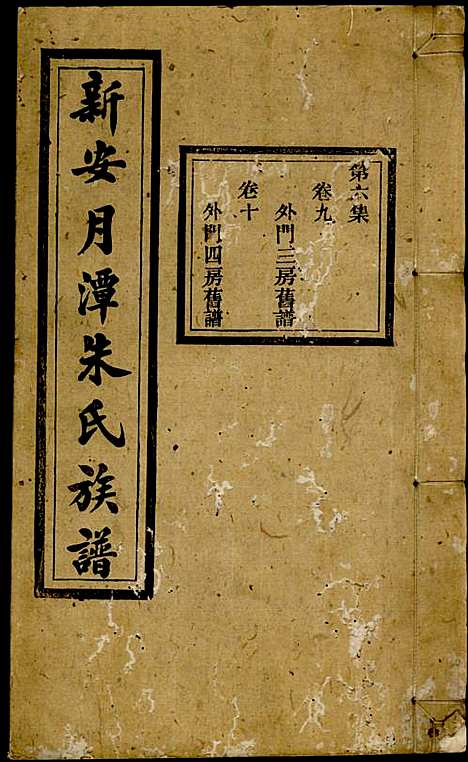 第六集
卷九
外門三房舊譜
卷十
外門四房舊譜
新安月潭朱氏族譜